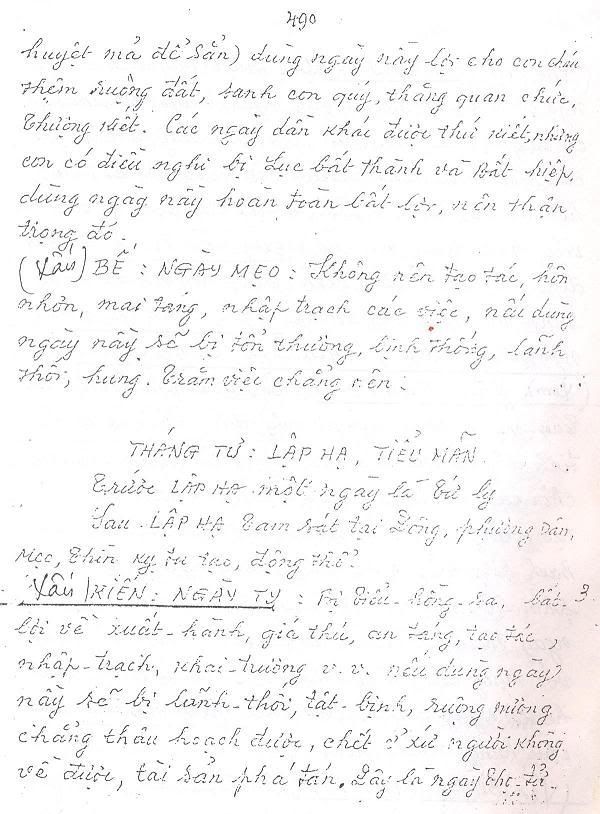 490
huyệt mả để sẵn) dùng ngày nầy lợi cho con cháu
thêm ruộng đất, sanh con quý, thăng quan chức,
Thượng kiết. Các ngày dần khác được thứ kiết, nhưng
con có điều nghi bị Lục bất thành và Bất hiệp,
dùng ngày nầy hoàn toàn bất lợi, nên thận
trọng đó.
(Xấu) BẾ : NGÀY MẸO : Không nên tạo tác, hôn
nhơn, mai táng, nhập trạch các việc, nếu dùng
ngày nầy sẽ bị tổn thương, bịnh thống, lãnh
thối, hung. Trăm việc chẳng nên :
THÁNG TƯ : LẬP HẠ, TIỂU MÃN.
Trước LẬP HẠ một ngày là Tứ ly
Sau LẬP HẠ Tam sát tại Đông, phương Dần,
Mẹo, Thìn kỵ tu tạo, động thổ.
Xấu) KIẾN : NGÀY TỴ : Bị Tiểu-hồng-sa, bất- 3
lợi về xuất-hành, giá thú, an táng, tạo tác,
nhập-trạch, khai-trương v.v. nếu dùng ngày
nầy sẽ bị lãnh-thối, tật-bịnh, ruộng mương
chẳng thâu hoạch được, chết ở xứ người không
về được, tài sản phá tán. Đây là ngày Thọ-tử-